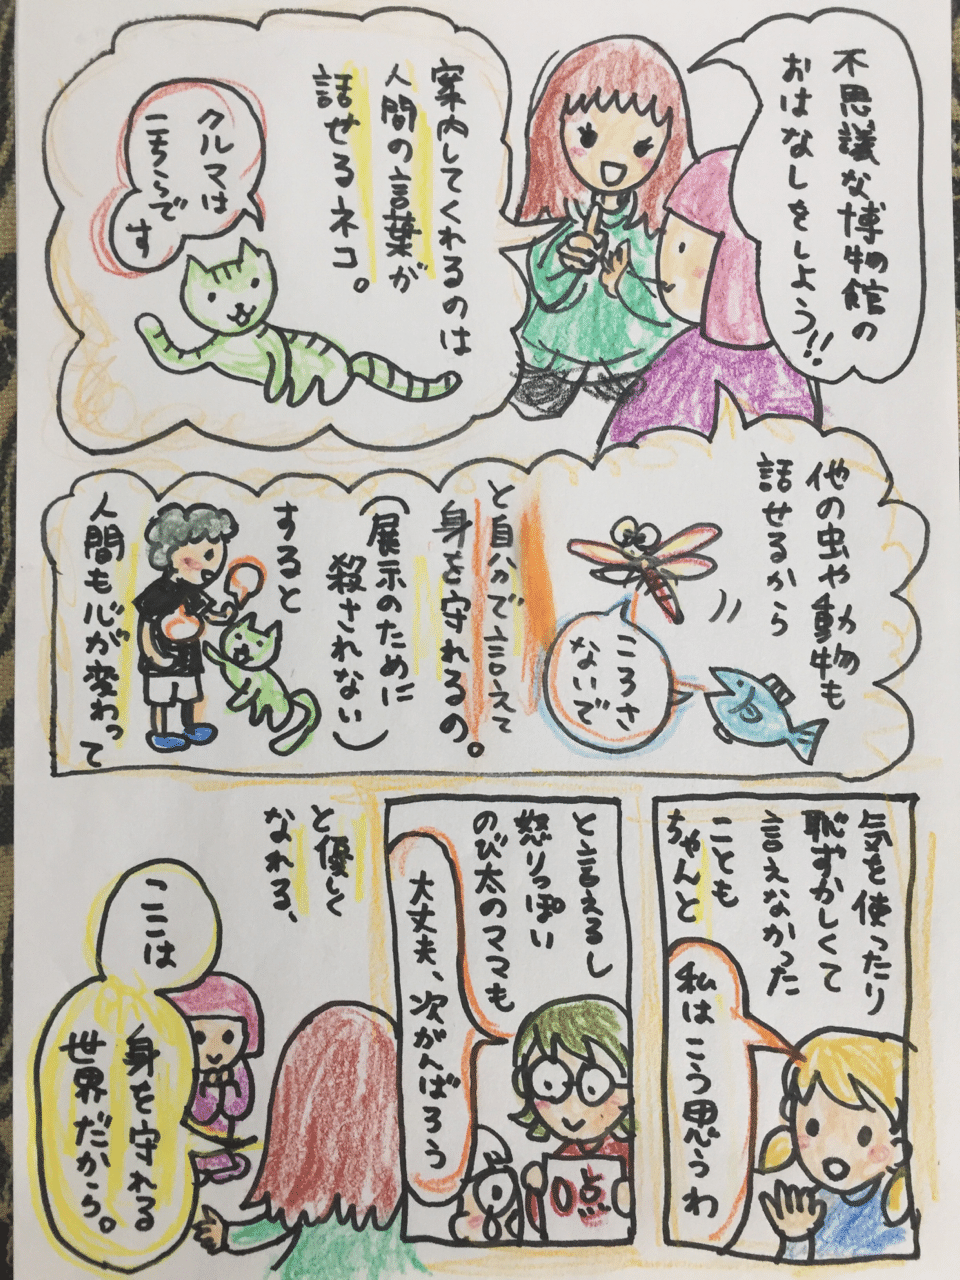 不思議な博物館の
おはなしをしよう!!
案内してくれるのは
人間の言葉が
話せるネコ。
クルマは
こちらで
す
他の虫や動物も
話せるから
ころさ
ないで
と自分で言えて
身を守れるの。
(展示のために
殺されない)
すると
人間も心が変わって
気を使ったり
恥ずかしくて
言えなかった
ことも
ちゃんと
私はこう思うわ
と言えるし
怒りっぽい
のび太のママも
大丈夫、次がんばろう
0点
と優しく
なれる、
ここは
身を守れる
世界だから。